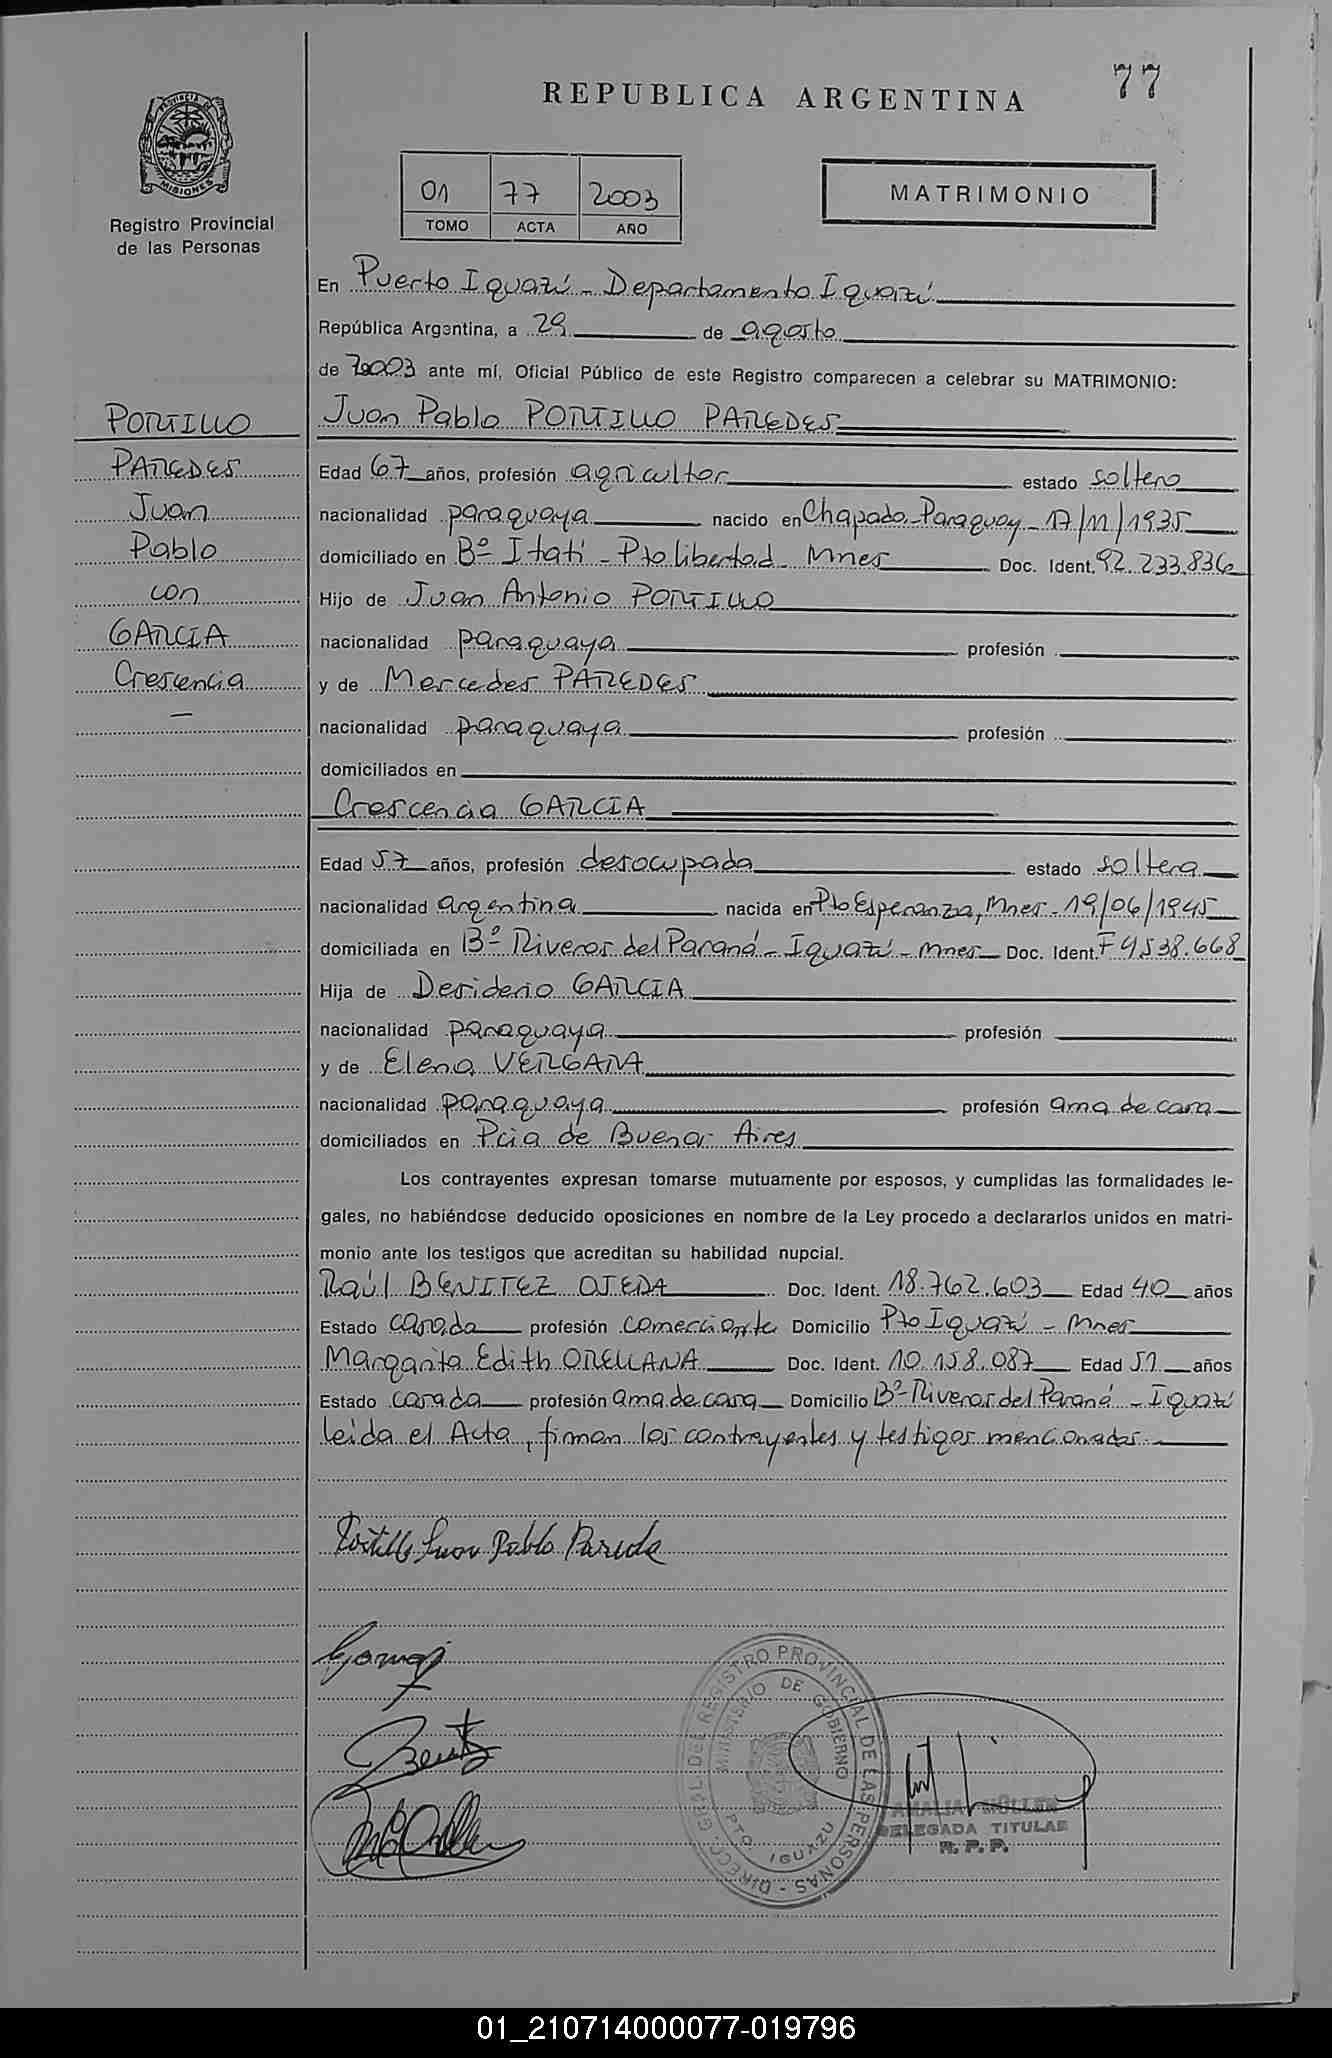 77
REPUBLICA ARGENTINA
PROVINCIA DE
MISIONES
Registro Provincial
de las Personas
01 77 2003
TOMO ACTA AÑO
MATRIMONIO
En Puerto Iguazú - Departamento Iguazú
República Argentina, a 29 de agosto
de 2003 ante mí, Oficial Público de este Registro comparecen a celebrar su MATRIMONIO:
PORTILLO
PAREDES
Juan
Pablo
con
GARCIA
Crescencia
Juan Pablo PORTILLO PAREDES
Edad 67 años, profesión agricultor estado soltero
nacionalidad paraguaya nacido en Chapado-Paraguay - 17/11/1935
domiciliado en Bº Itatí - Pto libertad - Mnes Doc. Ident. 92.233.836
Hijo de Juan Antonio PORTILLO
nacionalidad paraguaya profesión
y de Mercedes PAREDES
nacionalidad paraguaya profesión
domiciliados en
Crescencia GARCIA
Edad 57 años, profesión desocupada estado soltera
nacionalidad argentina nacida en Pto Esperanza, Mnes - 19/06/1945
domiciliada en Bº Riveras del Paraná - Iguazú - Mnes Doc. Ident. F 4538.668
Hija de Desiderio GARCIA
nacionalidad paraguaya profesión
y de Elena VERGARA
nacionalidad paraguaya profesión ama de casa
domiciliados en Pcia de Buenos Aires
Los contrayentes expresan tomarse mutuamente por esposos, y cumplidas las formalidades le-
gales, no habiéndose deducido oposiciones en nombre de la Ley procedo a declararlos unidos en matri-
monio ante los testigos que acreditan su habilidad nupcial.
Raúl BENITEZ OJEDA Doc. Ident. 18.762.603 Edad 40 años
Estado casado profesión comerciante Domicilio Pto Iguazú - Mnes
Margarita Edith ORELLANA Doc. Ident. 10.158.087 Edad 51 años
Estado casada profesión ama de casa Domicilio Bº Riveras del Paraná - Iguazú
leida el Acta, firman los contrayentes y testigos mencionados.
Portillo Juan Pablo Parede
DIRECC. GRAL. DEL REGISTRO PROVINCIAL DE LAS PERSONAS -
MINISTERIO DE GOBIERNO
PTO. IGUAZU
AMALIA MÜLLER
DELEGADA TITULAR
R. P. P.
01_210714000077-019796